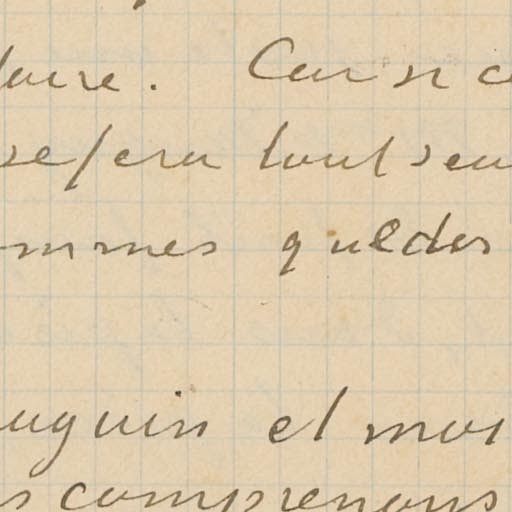 faire. Car si c
se fera tout seu
ommes que des
auguin et moi
s comprenons